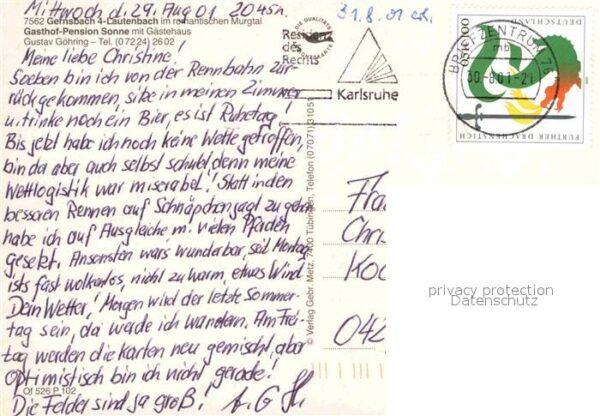 Mittwoch d. 29. Aug 01 20 45h
7562 Gernsbach 4-Lautenbach im romantischen Murgtal
Gasthof-Pension Sonne mit Gästehaus
Gustav Göhring – Tel. (07224) 2602
Meine liebe Christine!
Soeben bin ich von der Rennbahn zu-
rückgekommen, sitze in meinem Zimmer
u. trinke noch ein Bier, es ist Ruhetag!
Bis jetzt habe ich noch keine Wette getroffen,
bin da aber auch selbst schuld, denn meine
Wettlogistik war miserabel! Statt in den
besseren Rennen auf Schnäpchenjagd zu gehn
habe ich auf Ausgleiche m. vielen Pferden
gesetzt. Ansonsten wars wunderbar, seit Montag
ists fast wolkenlos, nicht zu warm, etwas Wind
Dein Wetter! Morgen wird der letzte Sommer-
tag sein, da werde ich wandern. Am Frei-
tag werden die Karten neu gemischt, aber
optimistisch bin ich nicht gerade!
Of 526 P 102
Die Felder sind ja groß!
© Verlag Gebr. Metz, 7400 Tübingen, Telefon (07071) 31051
31.8.01
Residenz
des
Rechts
Karlsruhe
BRIEFZENTRUM 76
mb
30-8.01-21
DEUTSCHLAND
FURTHER DRACHENSTICH
Fra
Chri
Koc
042
privacy protection
Datenschutz